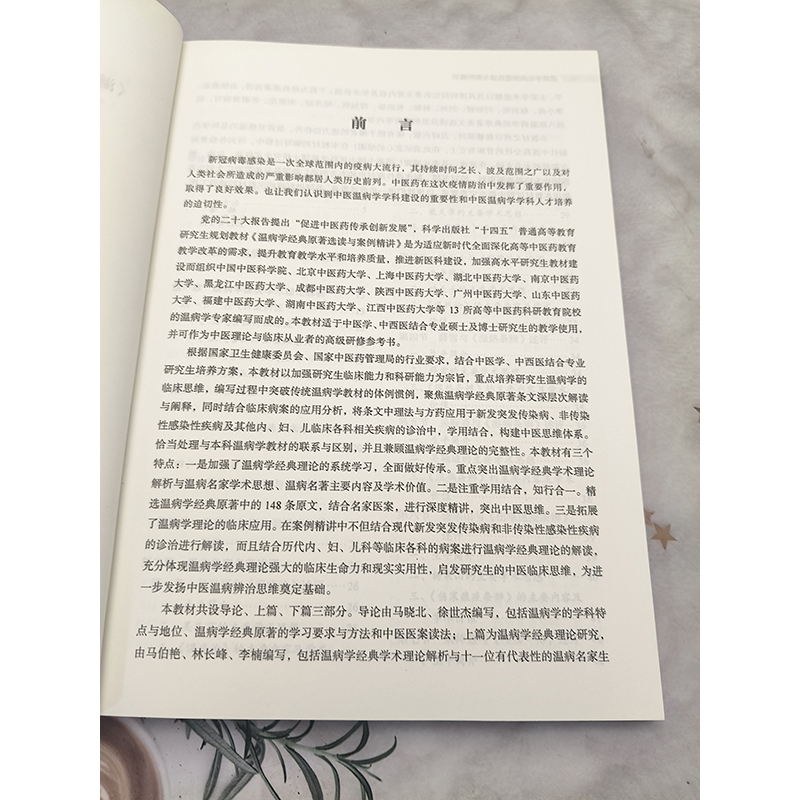 前 言
新冠病毒感染是一次全球范围内的疫病大流行，其持续时间之长、波及范围之广以及对
人类社会所造成的严重影响都居人类历史前列。中医药在这次疫情防治中发挥了重要作用，
取得了良好效果。也让我们认识到中医温病学学科建设的重要性和中医温病学学科人才培养
的迫切性。
党的二十大报告提出“促进中医药传承创新发展”，科学出版社“十四五”普通高等教育
研究生规划教材《温病学经典原著选读与案例精讲》是为适应新时代全面深化高等中医药教育
教学改革的需求，提升教育教学水平和培养质量，推进新医科建设，加强高水平研究生教材建
设而组织中国中医科学院、北京中医药大学、上海中医药大学、湖北中医药大学、南京中医药
大学、黑龙江中医药大学、成都中医药大学、陕西中医药大学、广州中医药大学、山东中医药
大学、福建中医药大学、湖南中医药大学、江西中医药大学等 13 所高等中医药科研教育院校
的温病学专家编写而成的。本教材适于中医学、中西医结合专业硕士及博士研究生的教学使用，
并可作为中医理论与临床从业者的高级研修参考书。
根据国家卫生健康委员会、国家中医药管理局的行业要求，结合中医学、中西医结合专业
研究生培养方案，本教材以加强研究生临床能力和科研能力为宗旨，重点培养研究生温病学的
临床思维，编写过程中突破传统温病学教材的体例惯例，聚焦温病学经典原著条文深层次解读
与阐释，同时结合临床病案的应用分析，将条文中理法与方药应用于新发突发传染病、非传染
性感染性疾病及其他内、妇、儿临床各科相关疾病的诊治中，学用结合，构建中医思维体系。
恰当处理与本科温病学教材的联系与区别，并且兼顾温病学经典理论的完整性。本教材有三个
特点：一是加强了温病学经典理论的系统学习，全面做好传承。重点突出温病学经典学术理论
解析与温病名家学术思想、温病名著主要内容及学术价值。二是注重学用结合，知行合一。精
选温病学经典原著中的 148 条原文，结合名家医案，进行深度精讲，突出中医思维。三是拓展
了温病学理论的临床应用。在案例精讲中不但结合现代新发突发传染病和非传染性感染性疾病
的诊治进行解读，而且结合历代内、妇、儿科等临床各科的病案进行温病学经典理论的解读，
充分体现温病学经典理论强大的临床生命力和现实实用性，启发研究生的中医临床思维，为进
一步发扬中医温病辨治思维奠定基础。
本教材共设导论、上篇、下篇三部分。导论由马晓北、徐世杰编写，包括温病学的学科特
点与地位、温病学经典原著的学习要求与方法和中医医案读法；上篇为温病学经典理论研究，
由马伯艳、林长峰、李楠编写，包括温病学经典学术理论解析与十一位有代表性的温病名家生